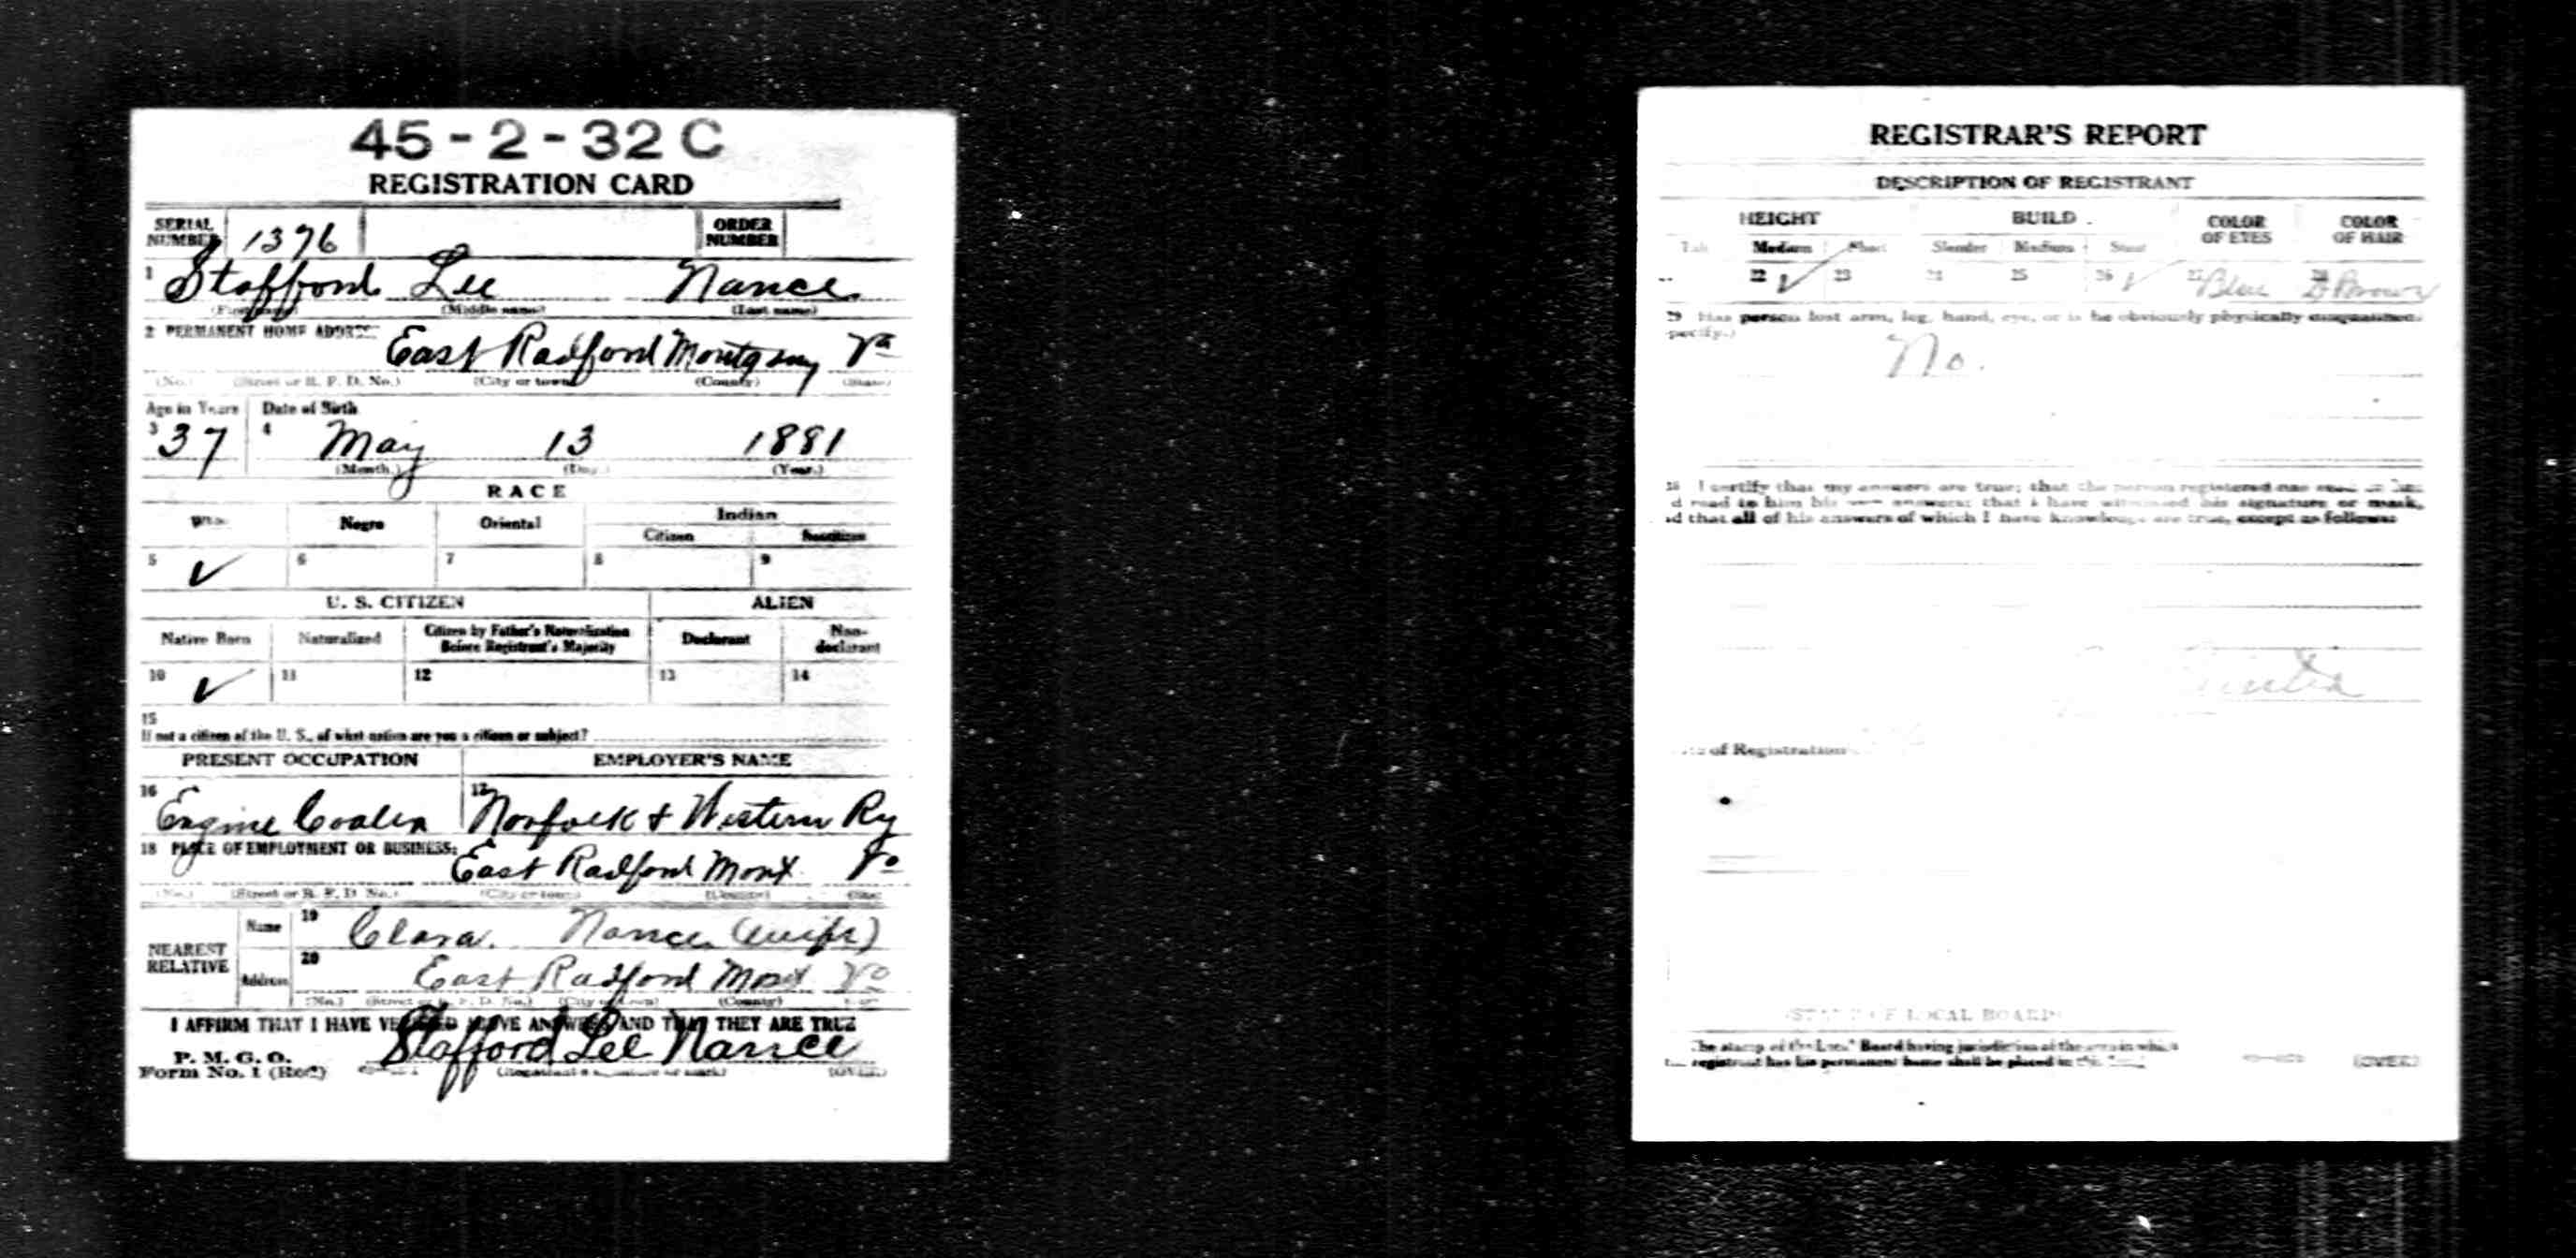 45-2-32 C
REGISTRATION CARD
SERIAL NUMBER 1376 ORDER NUMBER
1 Stafford Lee Nance
(First name) (Middle name) (Last name)
2 PERMANENT HOME ADDRESS:
East Radford Montgomy Va
(No.) (Street or R. F. D. No.) (City or town) (County) (State)
Age in Years Date of Birth
3 37 4 May 13 1881
(Month.) (Day.) (Year.)
RACE
White Negro Oriental Indian
Citizen Noncitizen
5 ✓ 6 7 8 9
U. S. CITIZEN ALIEN
Native Born Naturalized Citizen by Father's Naturalization Before Registrant's Majority Declarant Non-declarant
10 ✓ 11 12 13 14
15
If not a citizen of the U. S., of what nation are you a citizen or subject?
PRESENT OCCUPATION EMPLOYER'S NAME
16 Engine Coaler 17 Norfolk & Western Ry
18 PLACE OF EMPLOYMENT OR BUSINESS:
East Radford Mont Va
(No.) (Street or R. F. D. No.) (City or town) (County) (State)
NEAREST RELATIVE
Name 19 Clara Nance (wife)
Address 20 East Radford Mont Va
(No.) (Street or R. F. D. No.) (City or town) (County) (State)
I AFFIRM THAT I HAVE VERIFIED ABOVE ANSWERS AND THAT THEY ARE TRUE
P. M. G. O.
Form No. 1 (Red) Stafford Lee Nance
(Registrant's signature or mark) (OVER)
REGISTRAR'S REPORT
DESCRIPTION OF REGISTRANT
HEIGHT BUILD COLOR OF EYES COLOR OF HAIR
Tall Medium Short Slender Medium Stout
22 ✓ 23 24 25 26 ✓ 27 Blue 28 D Brown
29 Has person lost arm, leg, hand, eye, or is he obviously physically disqualified?
specify.)
No.
30 I certify that my answers are true; that the person registered has read or has
d read to him his own answers; that I have witnessed his signature or mark,
d that all of his answers of which I have knowledge are true, except as follows:
of Registration
(STAMP OF LOCAL BOARD)
The stamp of the Local Board having jurisdiction of the area in which
the registrant has his permanent home shall be placed in this
(OVER)